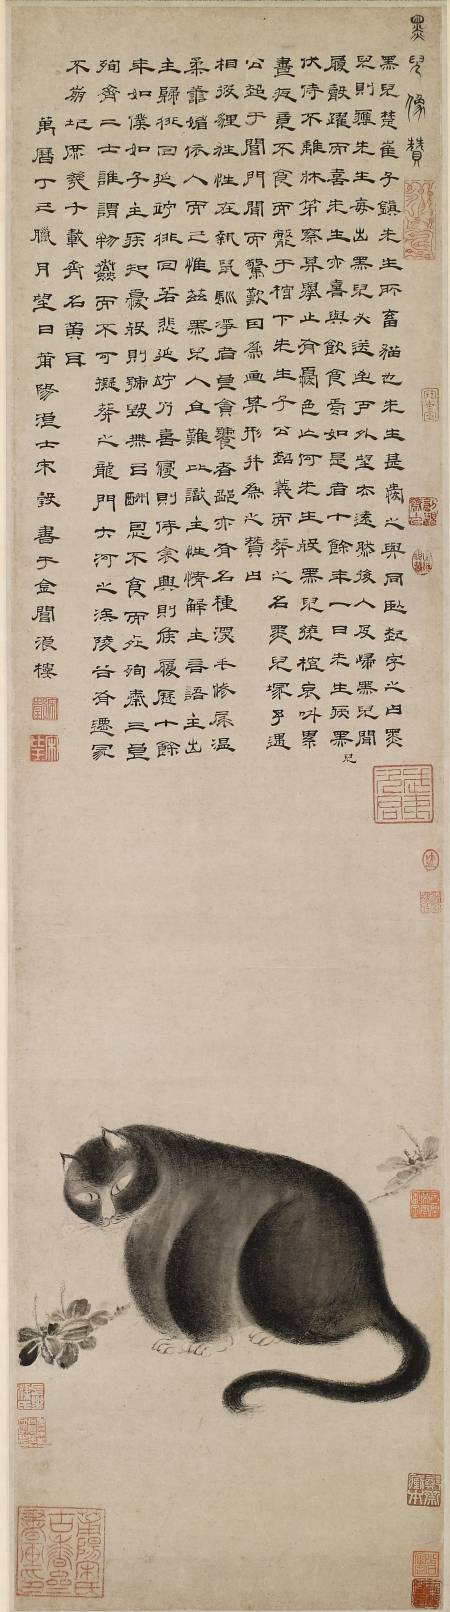 黑兒像贊
黑兒楚雀子鎮朱生所畜猫也朱生甚愛之與同臥起字之曰黑
兒則應朱生每出黑兒必送至戶外望去遠然後入及歸黑兒聞
履聲躍而喜朱生亦喜與飲食焉如是者十餘年一日朱生病黑兒
伏侍不離牀笫察其舉止有憂色亡何朱生歿黑兒繞棺哀叫累
晝夜竟不食而斃于棺下朱生子公超義而葬之名黑兒冢予遇
公超于閶門聞而驚歎因為画其形并為之贊曰
相彼貍牲性在執鼠馴淨者良貪饕者鄙亦有名種深毛修尾溫
柔誰媚依人而已惟茲黑兒人且難比識主性情解主言語主出
主歸徘回延竚徘回若悲延竚乃喜寢則侍衾興則俟履歷十餘
年如僕如子主疾知憂歿則號毀無以酬恩不食而死殉秦三良
殉齊二士誰謂物蠢而不可擬葬之龍門大河之涘陵谷有遷冢
不崩圮庶幾千載齊名黃耳
萬曆丁巳臘月望日莆陽漁士宋瑴書于金閶浪樓